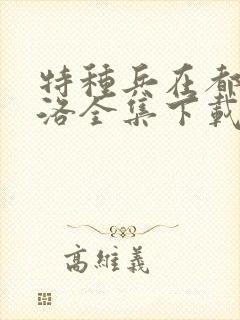 特種兵在都
洛全集下載
高維義